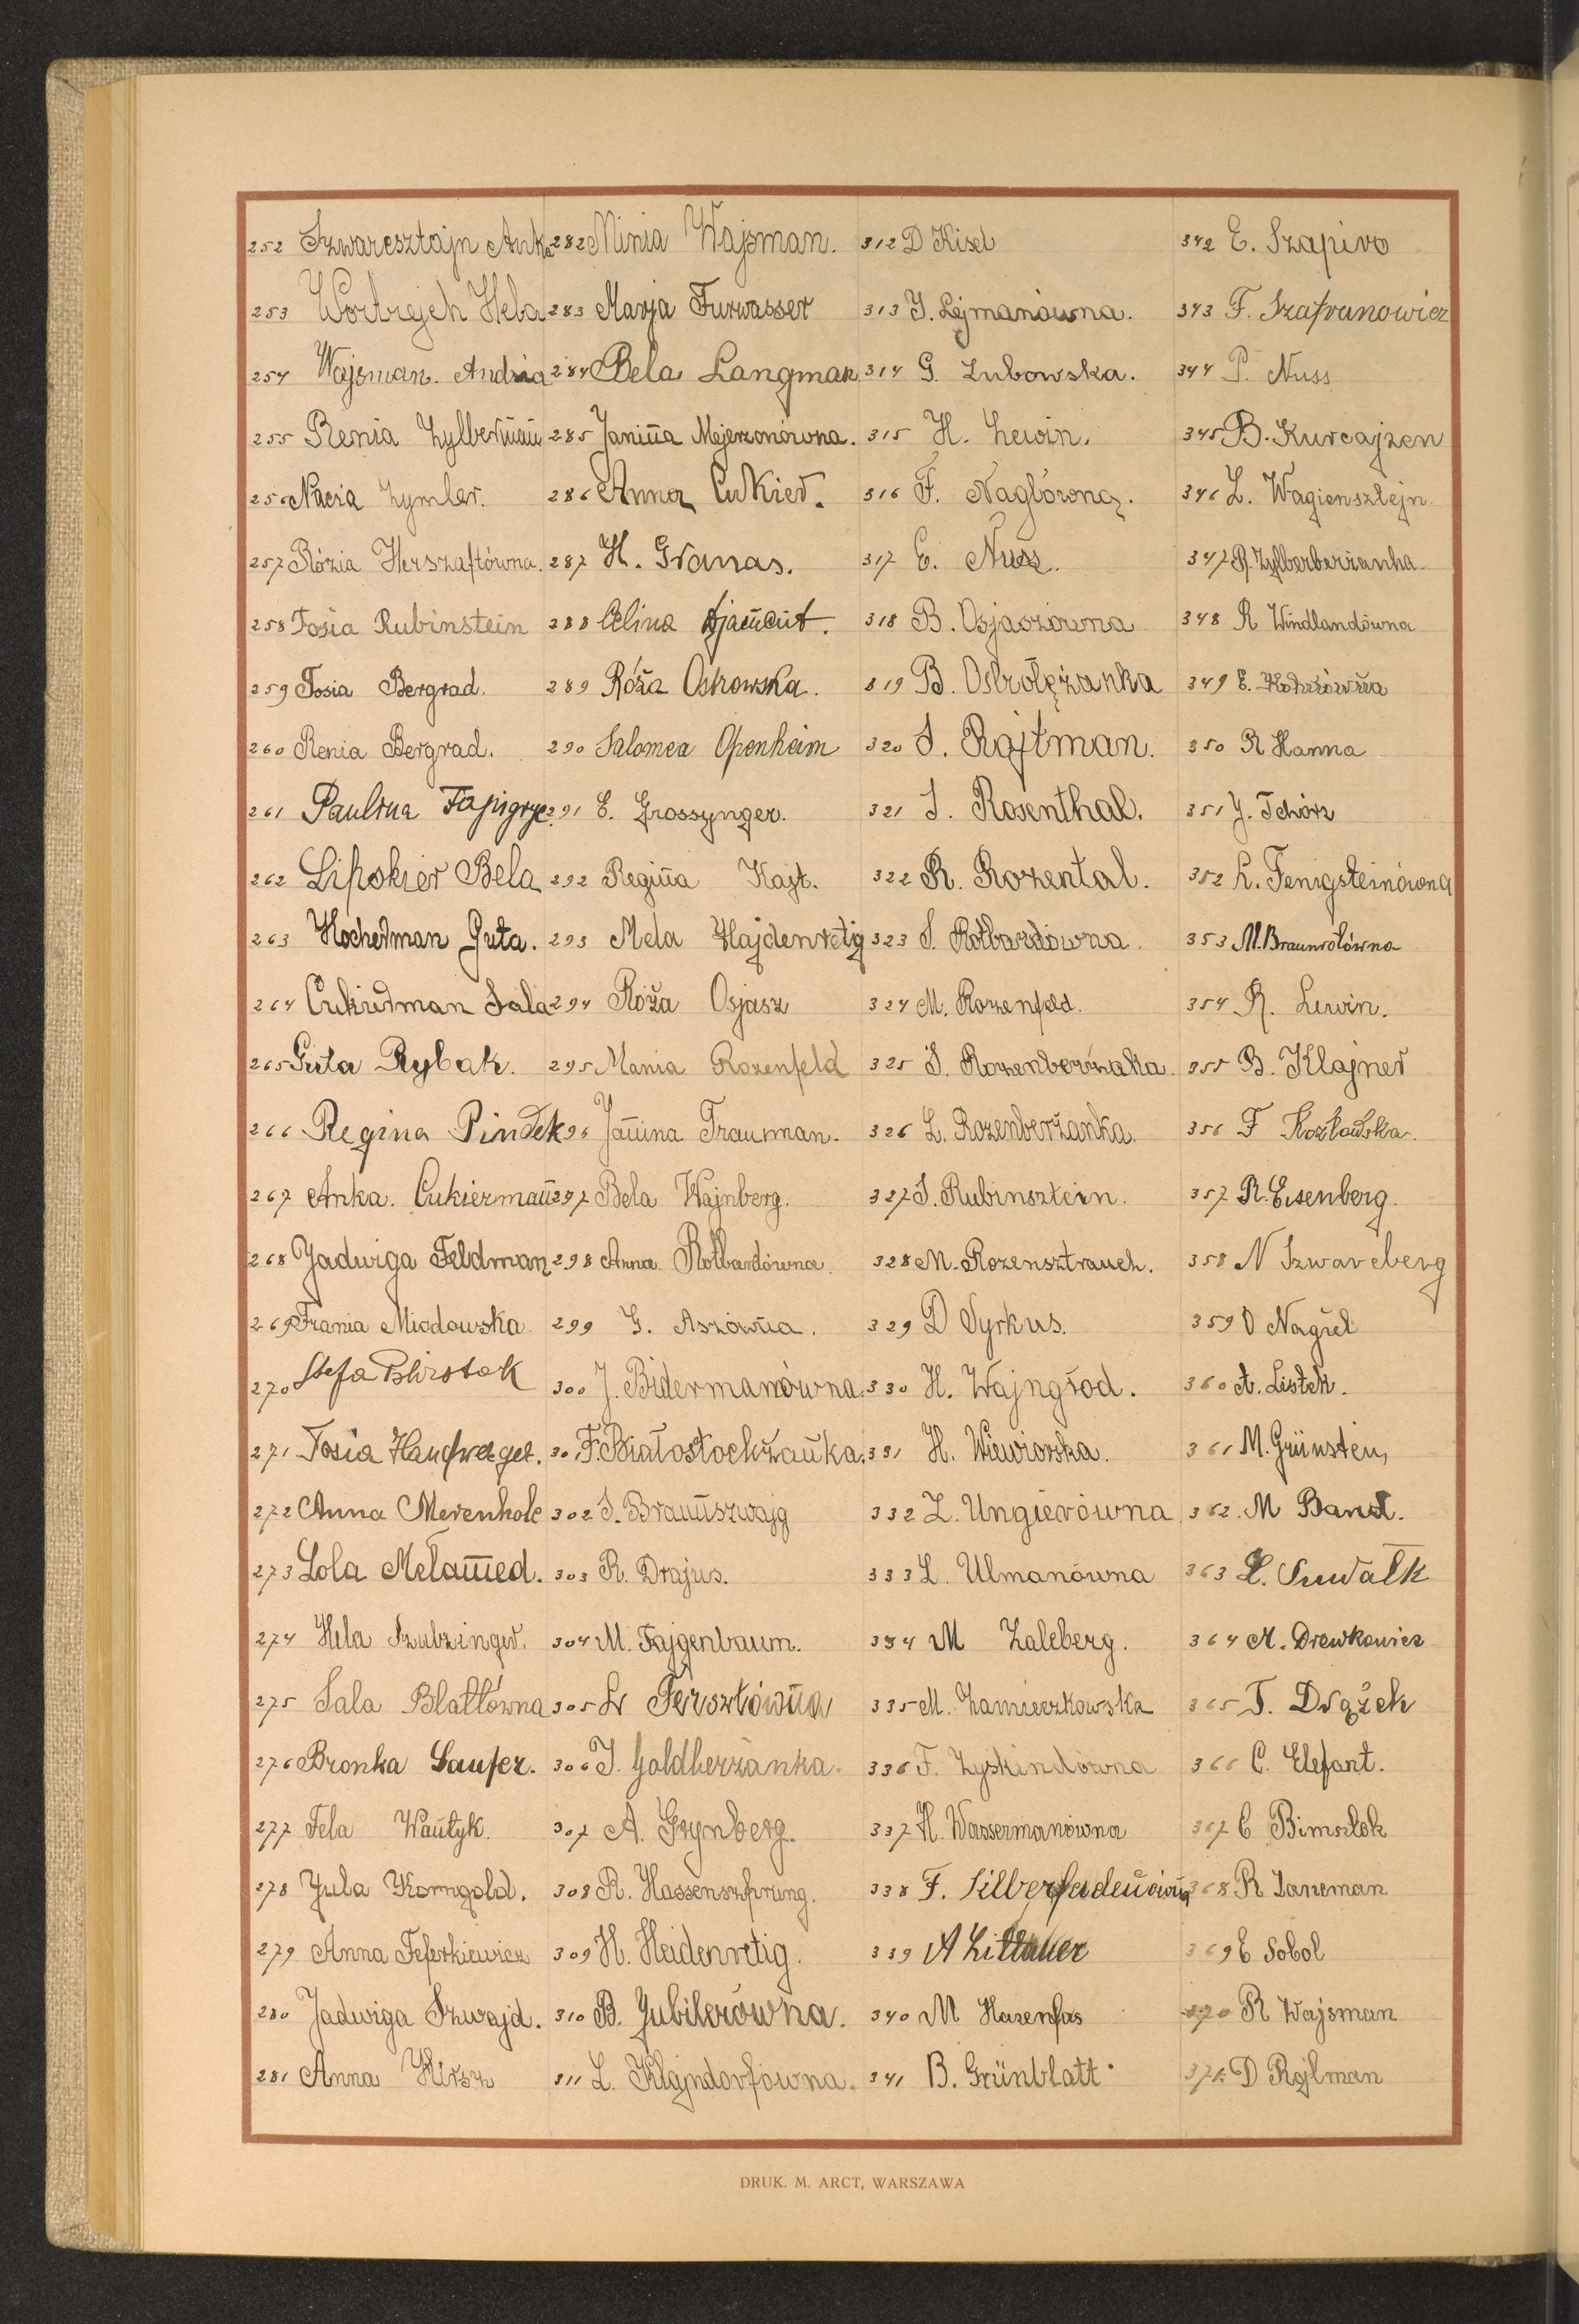 252 Szwarcsztajn Anka
253 Wortrejch Hela
254 Wajsman. Andzia
255 Renia Zylberman
256 Nacia Zymler.
257 Rózia Herszaftówna.
258 Tosia Rubinstein
259 Tosia Bergrad.
260 Renia Bergrad.
261 Paulina Fajngryc.
262 Lipskier Bela
263 Hocherman Guta.
264 Cukierman Sala
265 Guta Rybak.
266 Regina Pindek
267 Anka. Cukierman
268 Jadwiga Feldman
269 Frania Miodowska.
270 Stefa
271 Tosia
272 Anna Merenholc
273 Lola Melamed.
274 Hela Szulzinger.
275 Sala Blattówna
276 Bronka Laufer.
277 Fela Wantyk.
278 Jula Korngold.
279 Anna Feferkiewicz
280 Jadwiga Szwajd.
281 Anna Hirsz
282 Minia Wajsman.
283 Marja Furwasser
284 Bela Langman
285 Janina Mejerzonówna.
286 Anna Cukier.
287 H. Granas.
288 Celina Djament.
289 Róża Ostrowska.
290 Salomea Openheim
291 E. Grossynger.
292 Regina Hajt.
293 Mela Hajdenretig
294 Róża Osjasz
295 Mania Rozenfeld
296 Janina Frauman.
297 Bela Wajnberg.
298 Anna Rotbardówna.
299 G. Aszówna.
300 J. Bidermanówna.
301 F. Białostockżanka.
302 S. Braunszwajg
303 R. Drajus.
304 M. Fajgenbaum.
305 Fersztówna
306 J. Goldberżanka.
307 A. Grynberg.
308 R. Hassenszprung.
309 H. Heidenretig.
310 B. Jubilerówna.
311 L. Klajndorfówna.
312 D Kisel
313 J. Lejmanówna.
314 G. Lubowska.
315 H. Lewin.
316 F. Naglówna.
317 E. Nusz.
318 B. Osjaszówna
319 B. Ostrolężanka
320 S. Rajtman.
321 S. Rosenthal.
322 R. Rozental.
323 S. Rotbardówna.
324 M. Rozenfeld.
325 S. Rozenberżaka.
326 L. Rozenberżanka.
327 S. Rubinsztein.
328 M. Rozensztrauch.
329 D Syrkus.
330 H. Wajngrod.
331 H. Wiewiorska.
332 L. Ungierówna
333 L. Ulmanówna
334 M Zalcberg.
335 M. Zamieczkowska
336 F. Zyskindówna
337 H. Wassermanówna
338 F. Silberfadenówna
339 A Littauer
340 M Hazenfus
341 B. Grünblatt
342 E. Szapiro
343 F. Szafranowicz
344 P. Nuss
345 B. Kurcajzen
346 L. Wagiensztejn.
347 R. Zylberberżanka.
348 R Windlandówna
349 E.
350 R Hanna
351 J. Tchórz
352 L. Fenigsteinówna
353 M. Braunrotówna
354 R. Lewin.
355 B. Klajner
356 F Kozłowska.
357 R. Eisenberg.
358 N Szwarcberg
359 O Nagiel
360 A. Listek.
361 M. Grünstein
362. M Band.
363 L. Suwalk
364 M. Drewkowicz
365 T. Drążek
366 C. Elefant.
367 C Bimsztok
368 R Lanzman
369 E Sobol
370 R Wajsman
371 D Rojlman
DRUK. M. ARCT, WARSZAWA